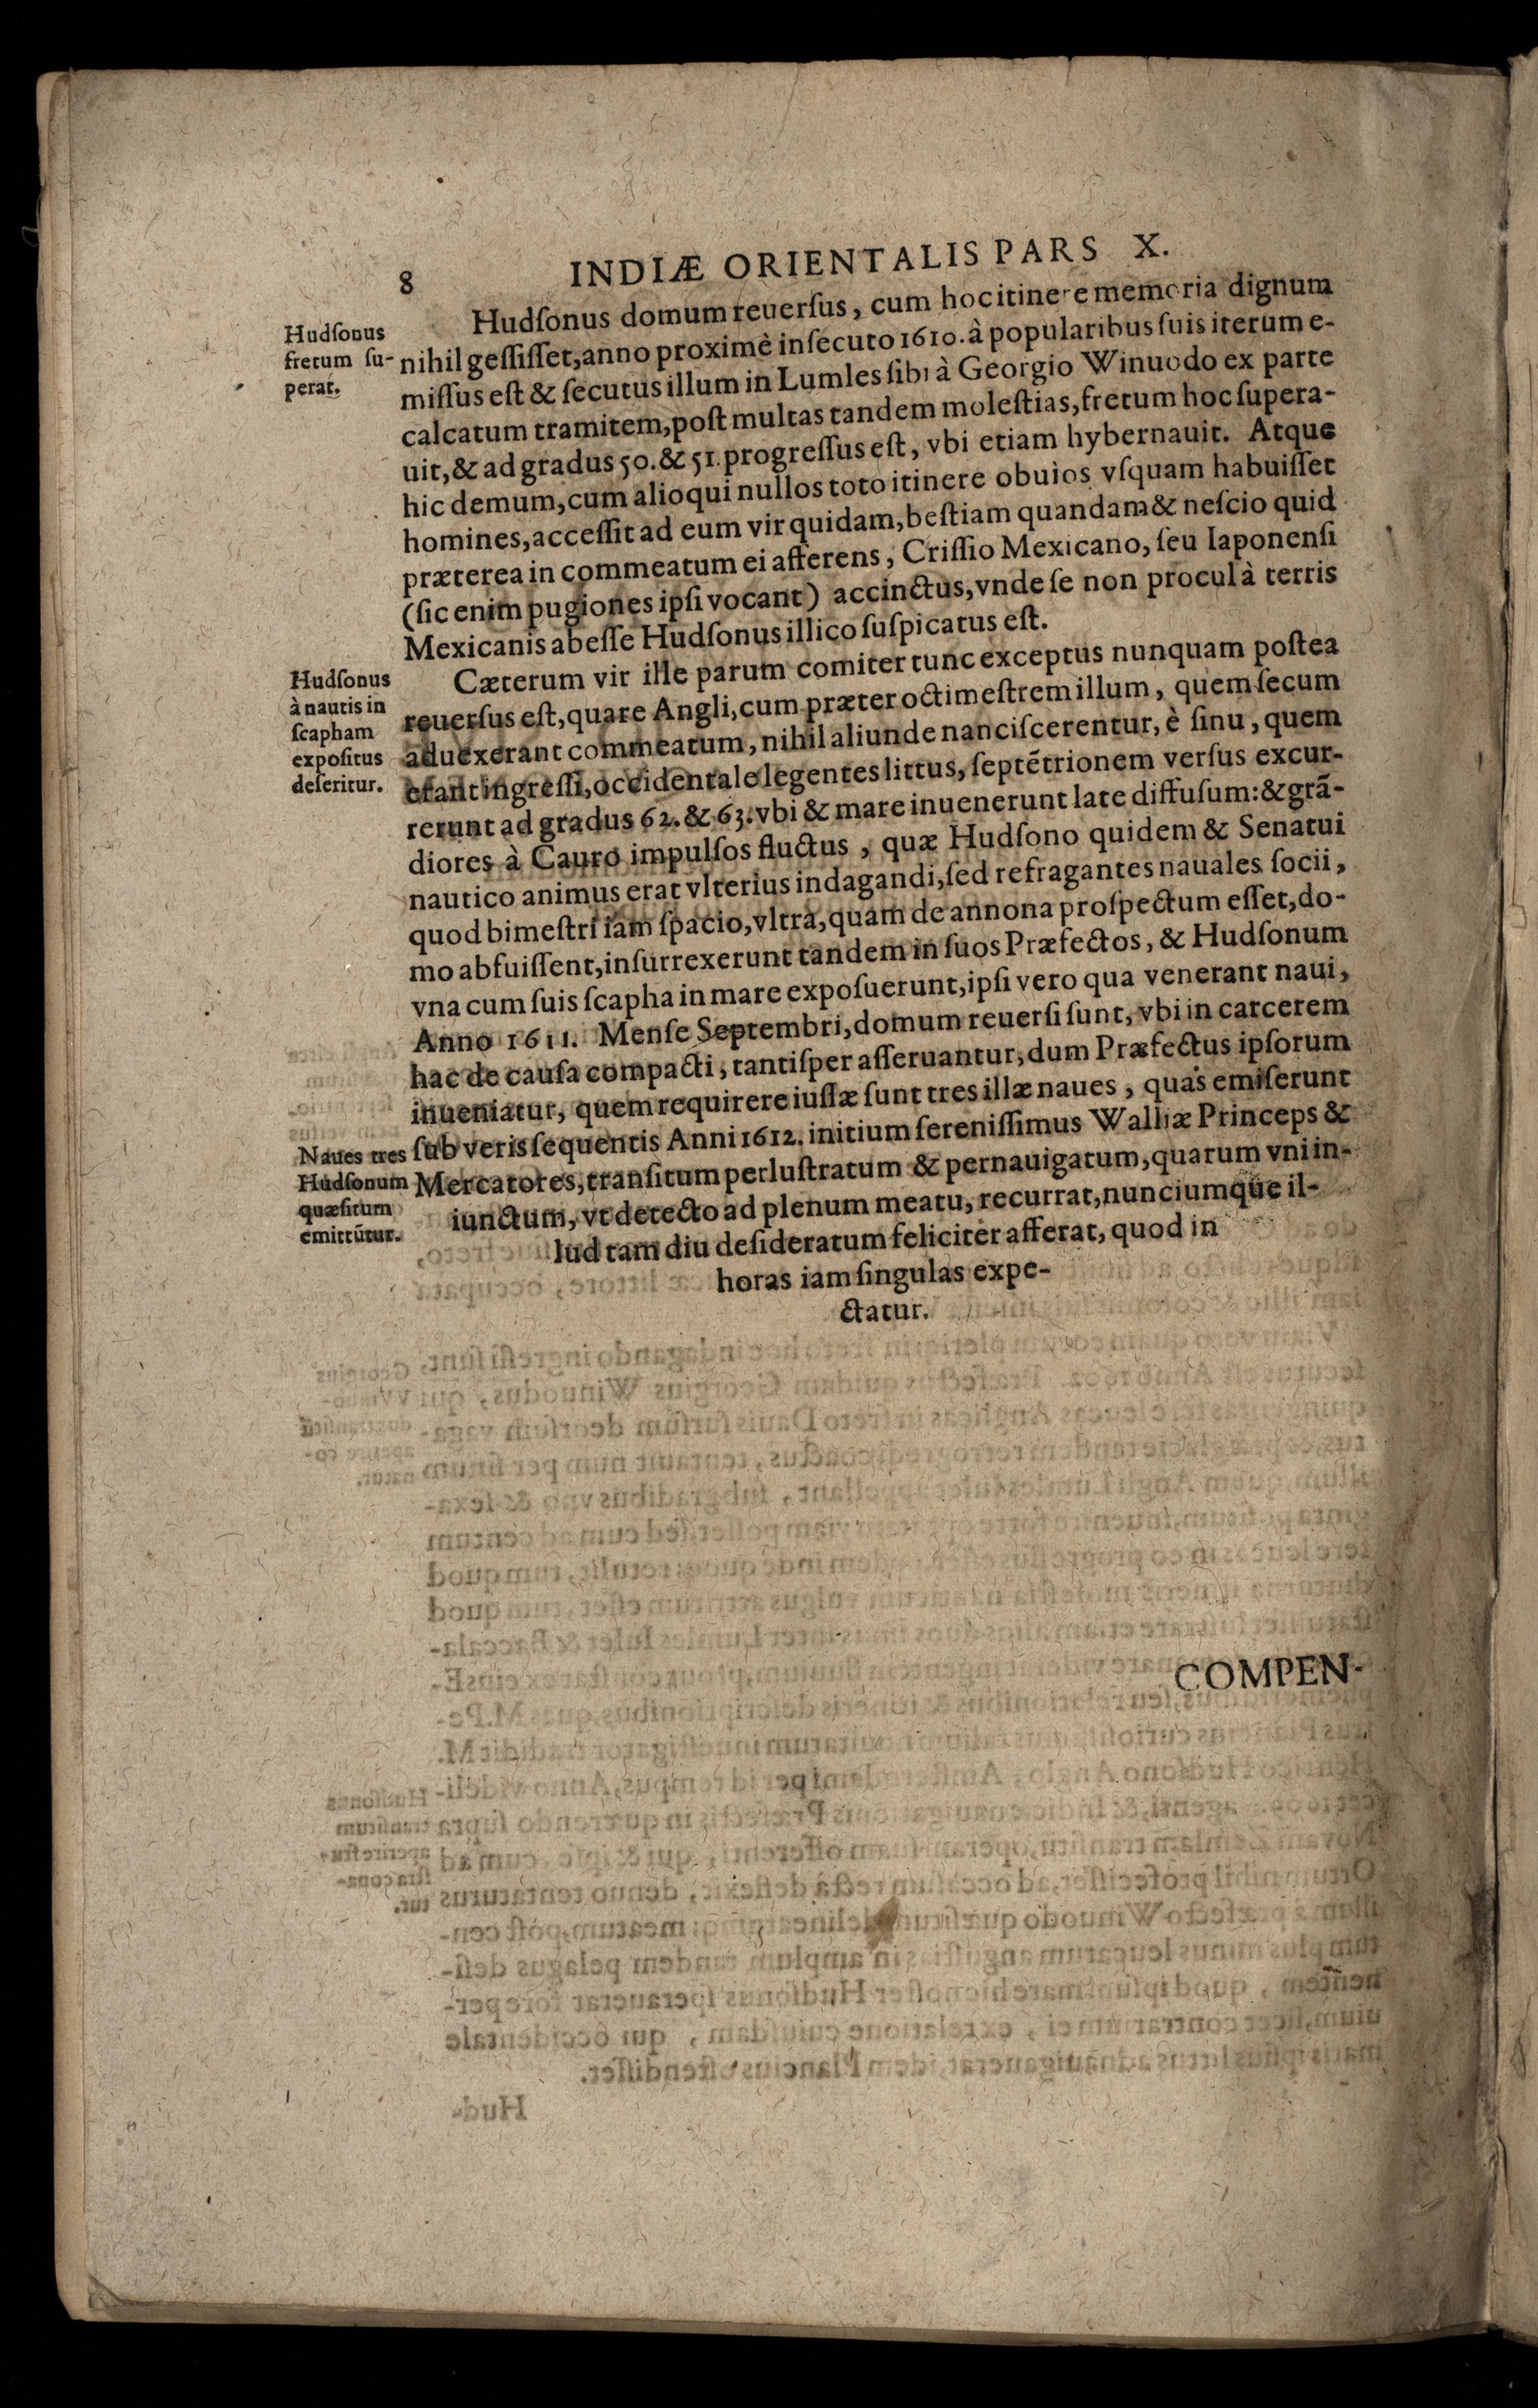 8 INDIÆ ORIENTALIS PARS X.
Hudſonus domum reuerſus, cum hoc itinere memoria dignum
nihil geſſiſſet, anno proximè inſecuto 1610. à popularibus ſuis iterum e-
miſſus eſt & ſecutus illum in Lumles ſibi à Georgio Winuodo ex parte
calcatum tramitem, poſt multas tandem moleſtias, fretum hoc ſupera-
uit, & ad gradus 50. & 51. progreſſus eſt, vbi etiam hybernauit. Atque
hic demum, cum alioqui nullos toto itinere obuios vſquam habuiſſet
homines, acceſſit ad eum vir quidam, beſtiam quandam & neſcio quid
præterea in commeatum ei afferens, Criſſio Mexicano, ſeu Iaponenſi
(ſic enim pugiones ipſi vocant) accinctus, vnde ſe non procul à terris
Mexicanis abeſſe Hudſonus illico ſuſpicatus eſt.
Hudſonus
fretum ſu-
perat.
Cæterum vir ille parum comiter tunc exceptus nunquam poſtea
reuerſus eſt, quare Angli, cum præter octimeſtrem illum, quem ſecum
aduexerant commeatum, nihil aliunde nanciſcerentur, è ſinu, quem
erant ingreſſi, occidentale legentes littus, ſeptẽtrionem verſus excur-
rerunt ad gradus 62. & 63. vbi & mare inuenerunt late diffuſum: & grã-
diores à Cauro impulſos fluctus, quæ Hudſono quidem & Senatui
nautico animus erat vlterius indagandi, ſed refragantes nauales ſocii,
quod bimeſtri iam ſpacio, vltra, quam de annona proſpectum eſſet, do-
mo abfuiſſent, inſurrexerunt tandem in ſuos Præfectos, & Hudſonum
vna cum ſuis ſcapha in mare expoſuerunt, ipſi vero qua venerant naui,
Anno 1611. Menſe Septembri, domum reuerſi ſunt, vbi in carcerem
hac de cauſa compacti, tantiſper aſſeruantur, dum Præfectus ipſorum
inueniatur, quem requirere iuſſæ ſunt tres illæ naues, quas emiſerunt
ſub veris ſequentis Anni 1612. initium ſereniſſimus Walliæ Princeps &
Mercatores, tranſitum perluſtratum & pernauigatum, quarum vni in-
iunctum, vt detecto ad plenum meatu, recurrat, nunciumque il-
lud tam diu deſideratum feliciter afferat, quod in
horas iam ſingulas expe-
ctatur.
Hudſonus
à nautis in
ſcapham
expoſitus
deſeritur.
Naues tres
Hudſonum
quæſitum
emittũtur.
COMPEN-